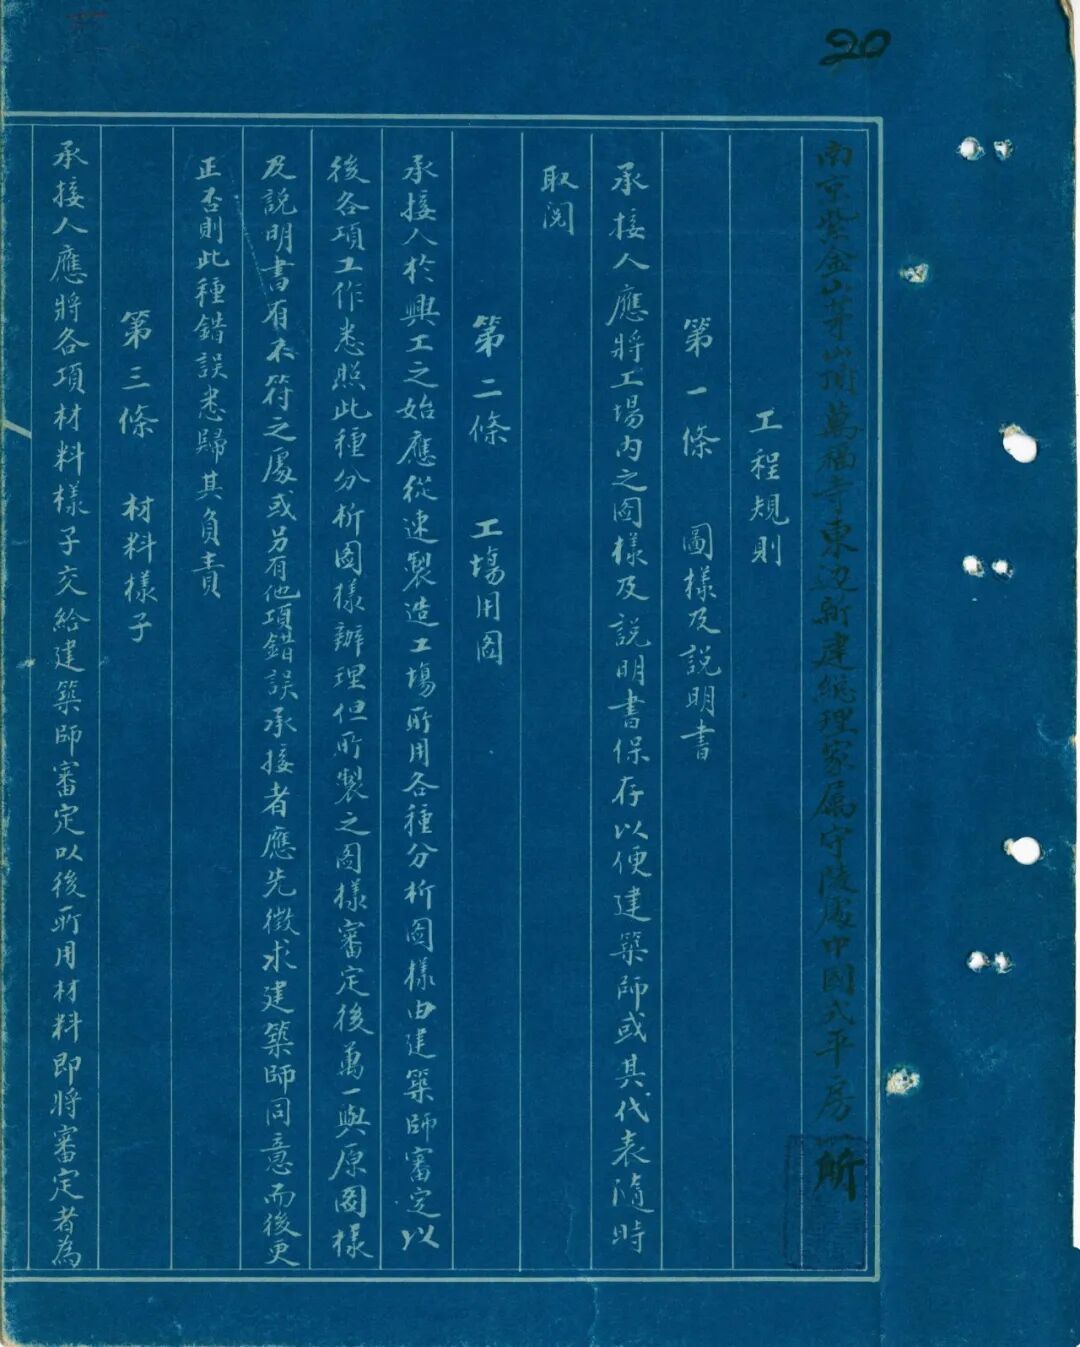 20
南京紫金山茅山頂萬福寺東边新建總理家属守陵處中國式平房一所
工程規則
第一條 圖樣及說明書
承接人應將工場内之图樣及說明書保存以便建築師或其代表隨時
取閲
第二條 工塲用图
承接人於興工之始應從速製造工塲所用各種分析图樣由建築師審定以
後各項工作悉照此種分析图樣辦理但所製之图樣審定後萬一與原图樣
及說明書有不符之處或另有他項錯誤承接者應先徵求建築師同意而後更
正否則此種錯誤悉歸其負責
第三條 材料樣子
承接人應將各項材料樣子交給建築師審定以後所用材料即將審定者為